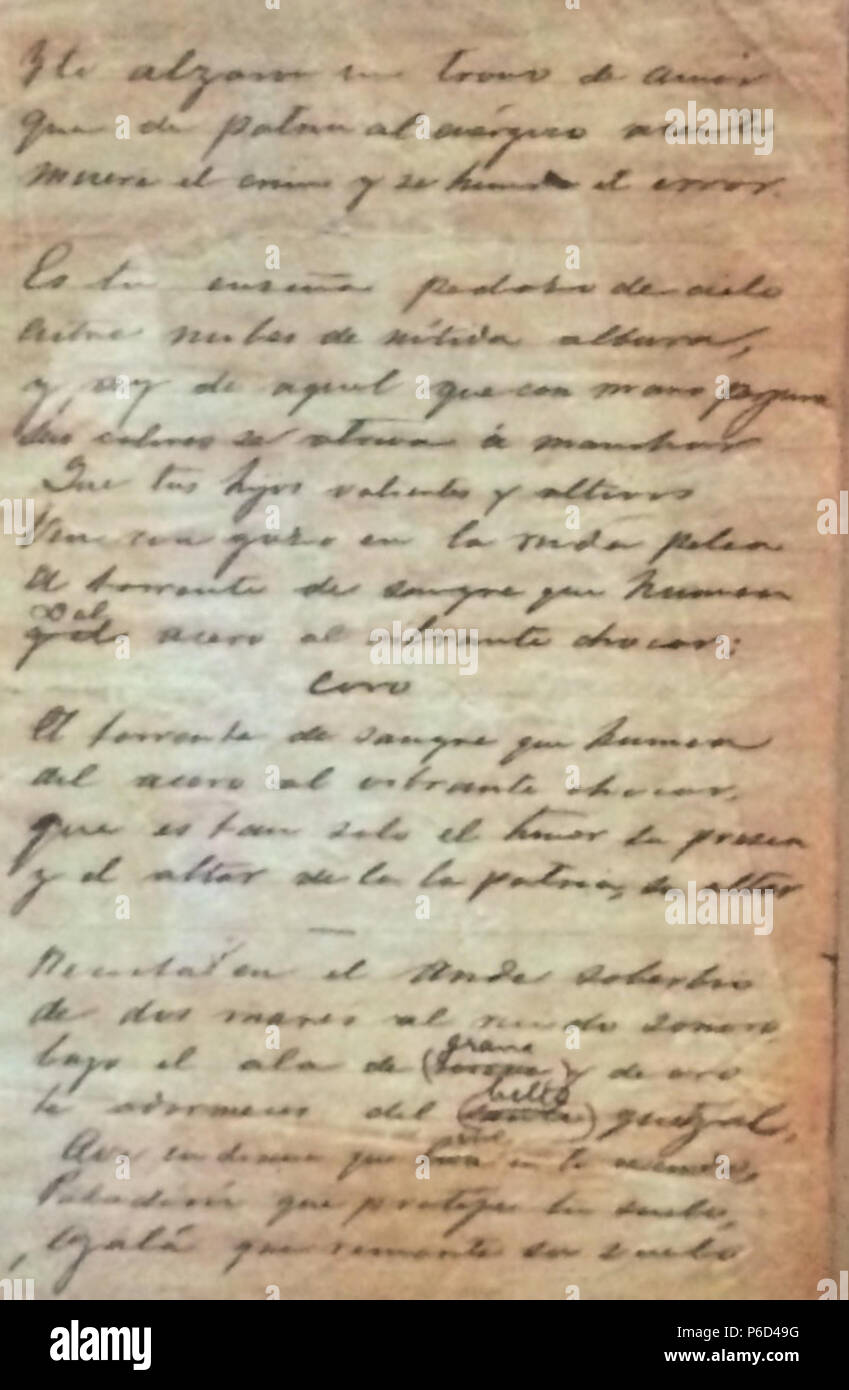 y te alzaron un trono de amor
que de patria al enérgico acento
muere el crimen y se hunde el error.
Es tu enseña pedazo de cielo
entre nubes de nítida albura,
y ay de aquel que con mano perjura
sus colores se atreva á manchar
Que tus hijos valientes y altivos
Ven con gozo en la ruda pelea
El torrente de sangre que humea
del
acero al vibrante chocar;
Coro
El torrente de sangre que humea
del acero al vibrante chocar,
que es tan solo el honor su presea
y el altar de la la patria, su altar
Recostada en el Ande soberbio
de dos mares al ruido sonoro
grana
bajo el ala de ( ) y de oro
bello
te adormeces del ( ) quetzal,
Ave indiana que vive en tu escudo,
Paladión que protege tu suelo,
Ojalá que remonte su vuelo
a
alamy
alamy stock photo
P6D49G
www.alamy.com